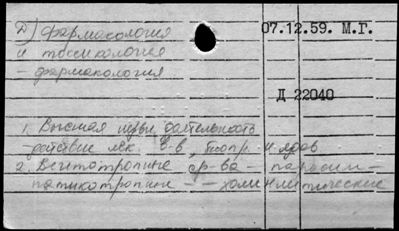 Д) фармакология
и токсикология
– фармакология
07.12.59. М.Г.
Д 22040
1. Высшая нервн. деятельность
– действие лек. в-в, и ядов
2. Вегетотропные ср-ва – парасим–
патикотропные – – холинолитические